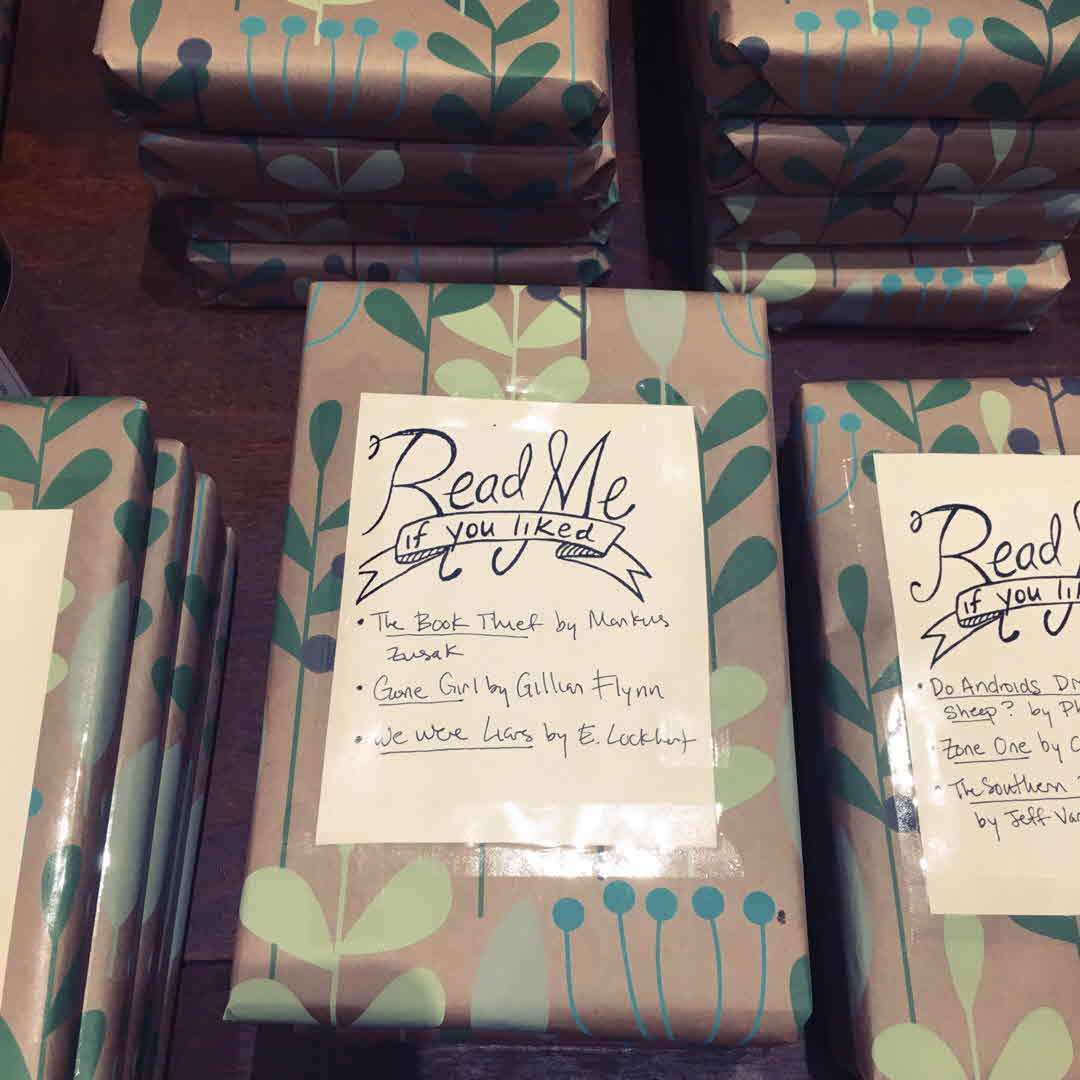 Read Me
if you liked
• The Book Thief by Markus
Zusak
• Gone Girl by Gillian Flynn
• We Were Liars by E. Lockhart
Read
if you
• Do Androids
Sheep? by
• Zone One by
• The Southern
by Jeff